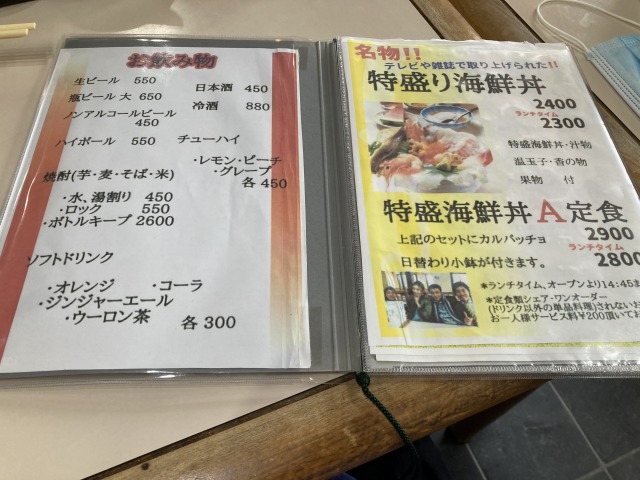 お飲み物
生ビール 550
瓶ビール 大 650
ノンアルコールビール
450
日本酒 450
冷酒 880
ハイボール 550
チューハイ
・レモン・ピーチ
・グレープ
各 450
焼酎(芋・麦・そば・米)
・水、湯割り 450
・ロック 550
・ボトルキープ 2600
ソフトドリンク
・オレンジ ・コーラ
・ジンジャーエール
・ウーロン茶 各 300
名物!!
テレビや雑誌で取り上げられた!!
特盛り海鮮丼
2400
ランチタイム
2300
特盛海鮮丼・汁物
温玉子・香の物
果物 付
特盛海鮮丼 A定食
2900
ランチタイム
2800
上記のセットにカルパッチョ
日替わり小鉢が付きます。
*ランチタイム、オープンより14:45ま
*定食類シェア・ワンオーダー
(ドリンク以外の単品料理)されない
お一人様サービス料¥200頂いてお